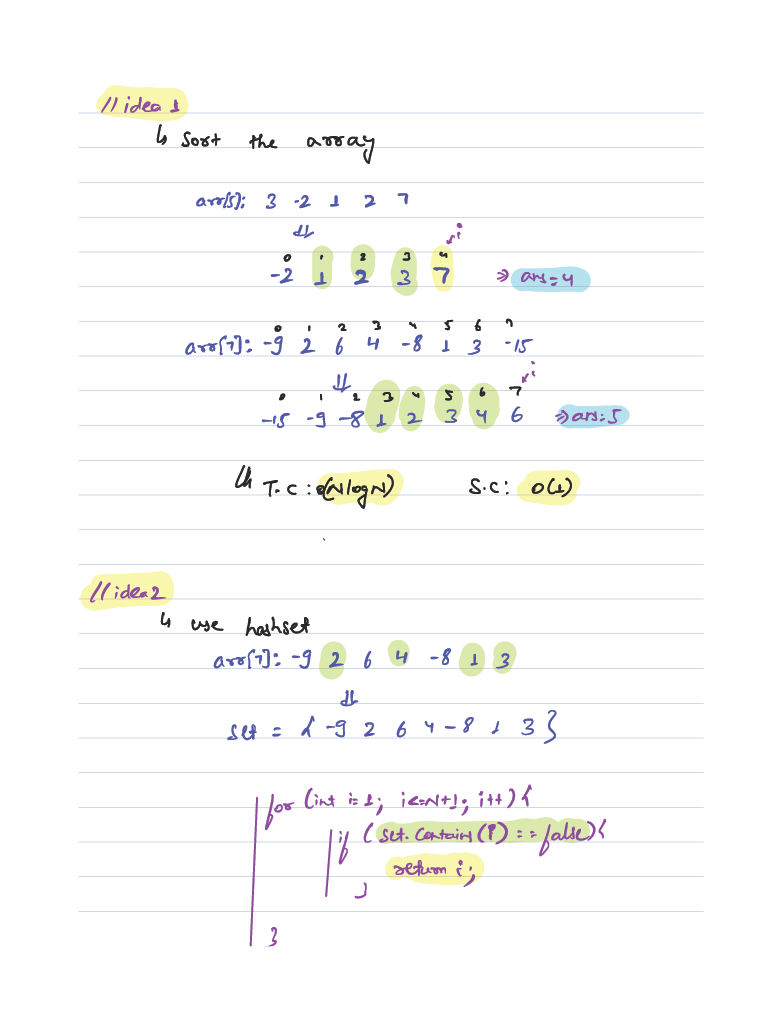 // idea 1
↳ Sort the array
arr[5]: 3 -2 1 2 7
⇓ i
0 1 2 3 4
-2 1 2 3 7 ⇒ ans = 4
0 1 2 3 4 5 6 7
arr[7]: -9 2 6 4 -8 1 3 -15
⇓ i
0 1 2 3 4 5 6 7
-15 -9 -8 1 2 3 4 6 ⇒ ans: 5
↳ T.C : O(N log N) S.C: O(1)
// idea 2
↳ use hashset
arr[7]: -9 2 6 4 -8 1 3
⇓
Set = { -9 2 6 4 -8 1 3 }
for (int i=1; i<=N+1; i++) {
if ( set.contains(i) == false) {
return i;
}
}